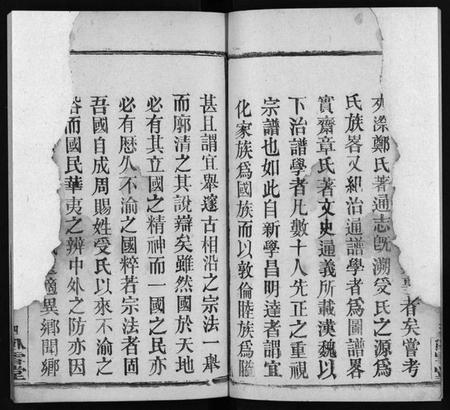 者矣嘗考
夾漈鄭氏著通志既溯受氏之源為
氏族畧又綜治通譜學者為圖譜畧
實齋章氏著文史通義所載漢魏以
下治譜學者凡數十人先正之重視
宗譜也如此自新學昌明達者謂宜
化家族為國族而以敦倫睦族為膽
甚且謂宜舉邃古相沿之宗法一舉
而廓清之其說辯矣雖然國於天地
必有其立國之精神而一國之民亦
必有歷久不渝之國粹者宗法者固
吾國自成周賜姓受氏以來不渝之
而國民華夷之辨中外之防亦因
異鄉聞鄉
雲堂